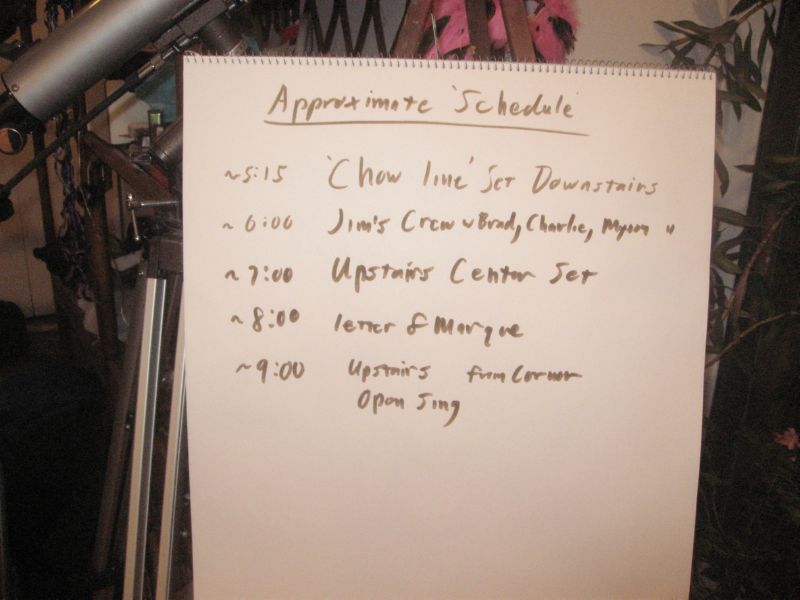 Approximate 'Schedule'
~5:15 'Chow line' Set Downstairs
~6:00 Jim's Crew w Brad, Charlie, Myron "
~7:00 Upstairs Center Set
~8:00 letter of Marque
~9:00 Upstairs from Corner
Open Sing